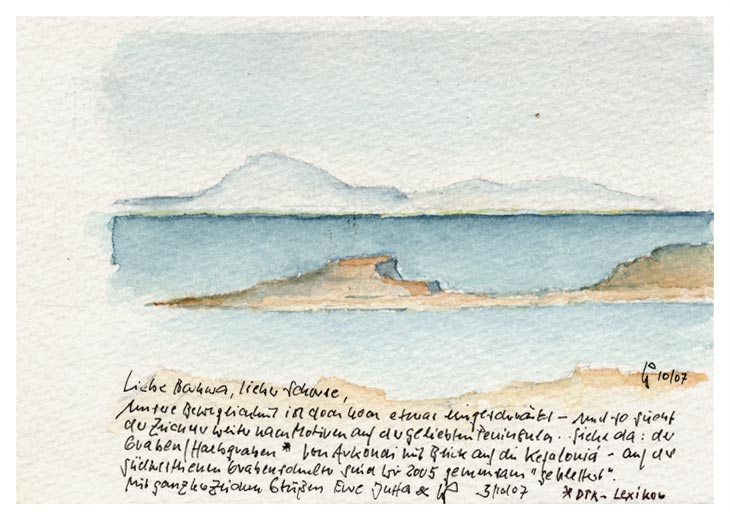 10/07
Liebe Barbara, lieber
unsere Beweglichkeit ist doch noch etwas eingeschränkt – und so sucht
der Zeichner weiter nach Motiven auf der geliebten Peninsula.. Siehe da: der
Graben/Halbgraben * von Arkoudi mit Blick auf die Kefalonia – auf der
südwestlichen Grabenschulter sind wir 2005 gemeinsam "geklettert".
Mit ganz herzlichen Grüßen Eure Jutta & 3/10/07 * DTK – Lexikon